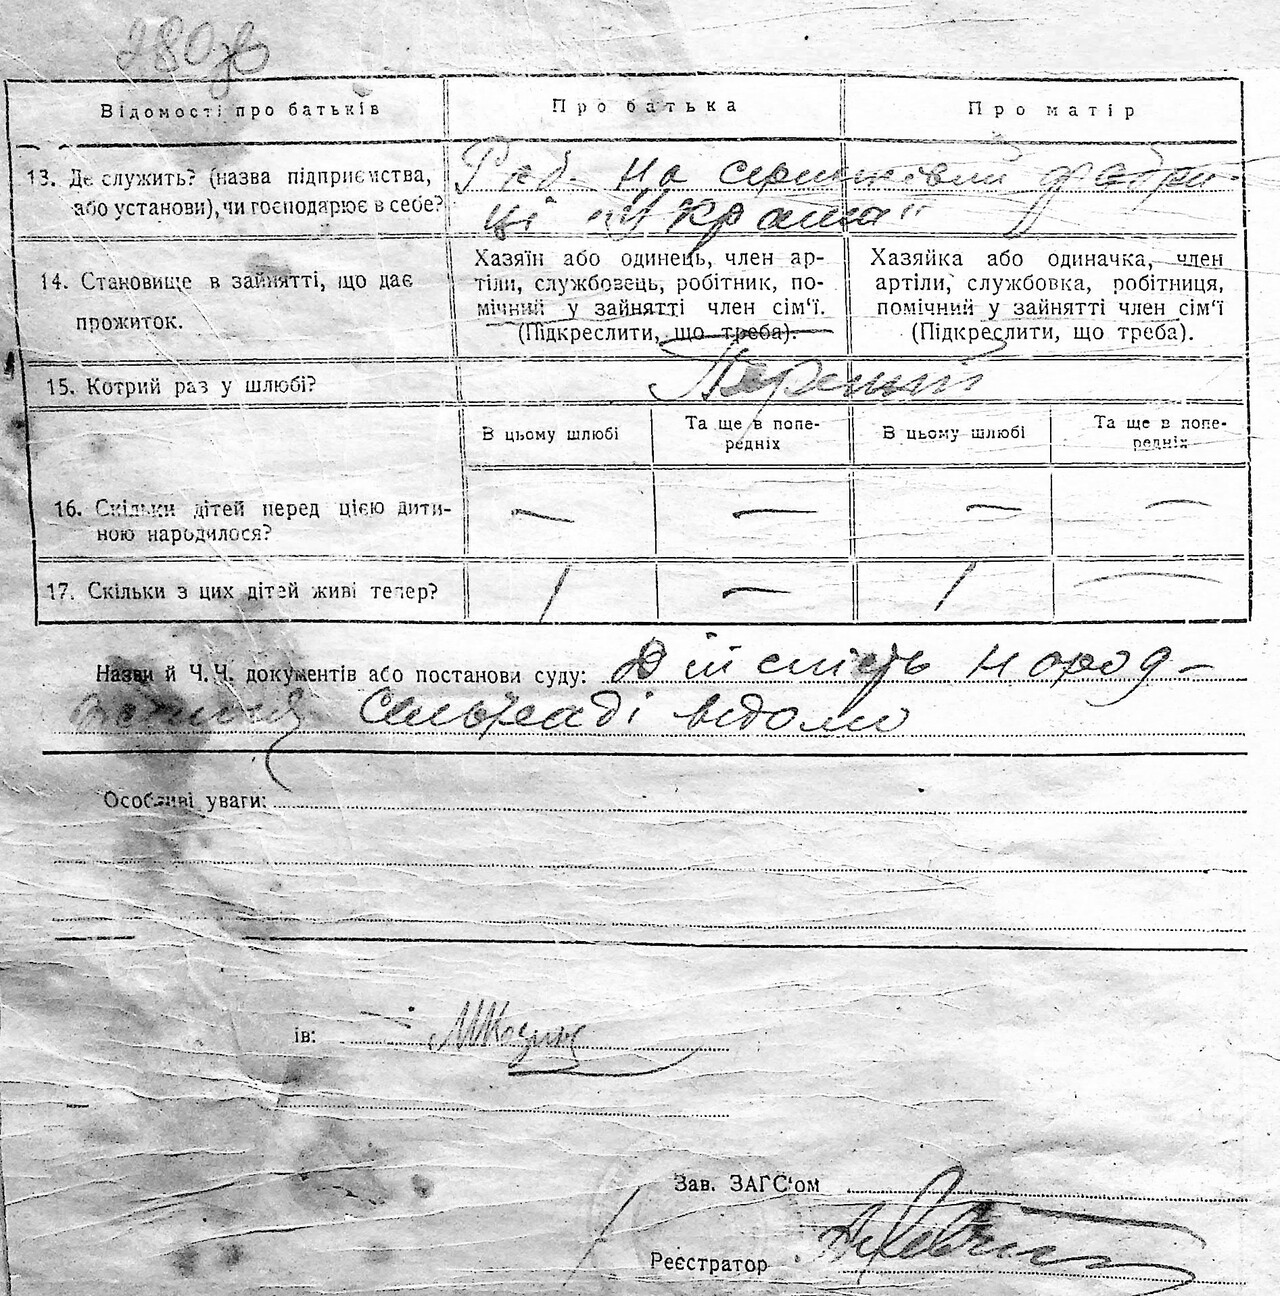 280зв
Відомості про батьків
Про батька
Про матір
13. Де служить? (назва підприємства,
або установи), чи господарює в себе?
Роб. на сірниковій фабри-
ці "Україна"
14. Становище в зайнятті, що дає
прожиток.
Хазяїн або одинець, член ар-
тіли, службовець, робітник, по-
мічний у зайнятті член сім'ї.
(Підкреслити, що треба).
Хазяйка або одиначка, член
артіли, службовка, робітниця,
помічний у зайнятті член сім'ї
(Підкреслити, що треба).
15. Котрий раз у шлюбі?
Перший
В цьому шлюбі
Та ще в попе-
редніх
В цьому шлюбі
Та ще в попе-
редніх
16. Скільки дітей перед цією дити-
ною народилося?
— — — —
17. Скільки з цих дітей живі тепер?
1 — 1 —
Назви й Ч.Ч. документів або постанови суду: Дійсність народ-
сельраді відомо
Особливі уваги:
ів:
Зав. ЗАГС'ом
Реєстратор